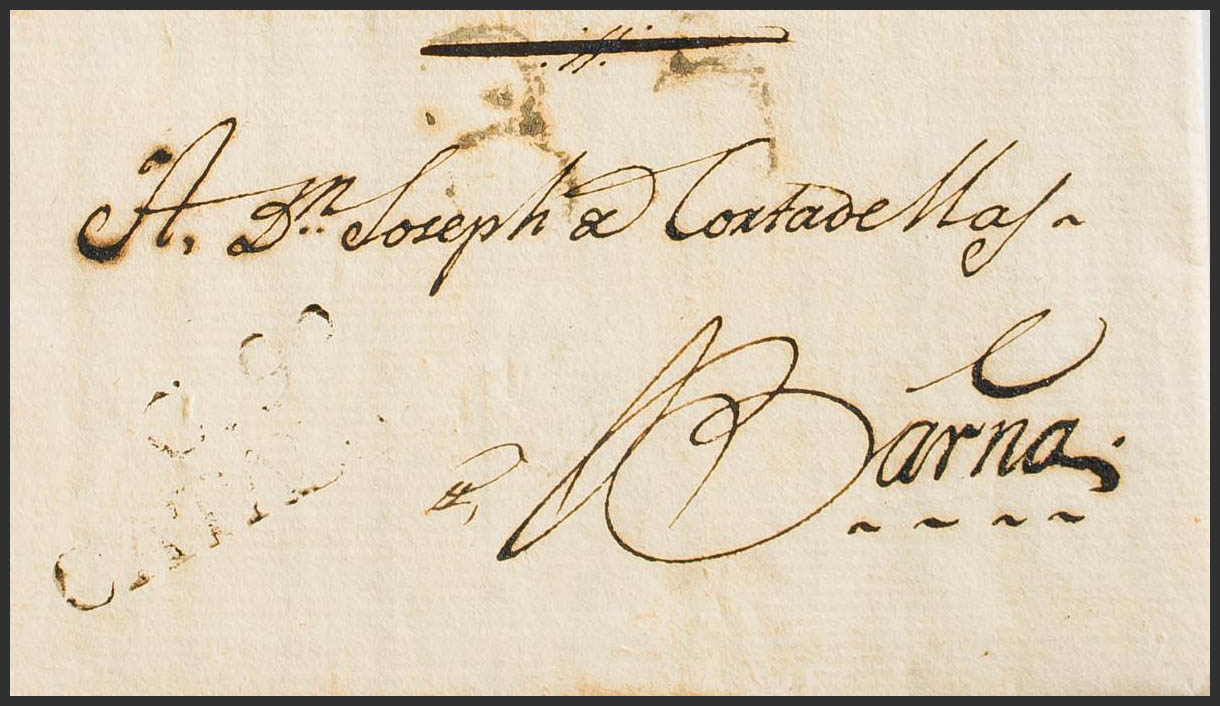 A, Dn. Joseph de Cortadellas ~
Barna.